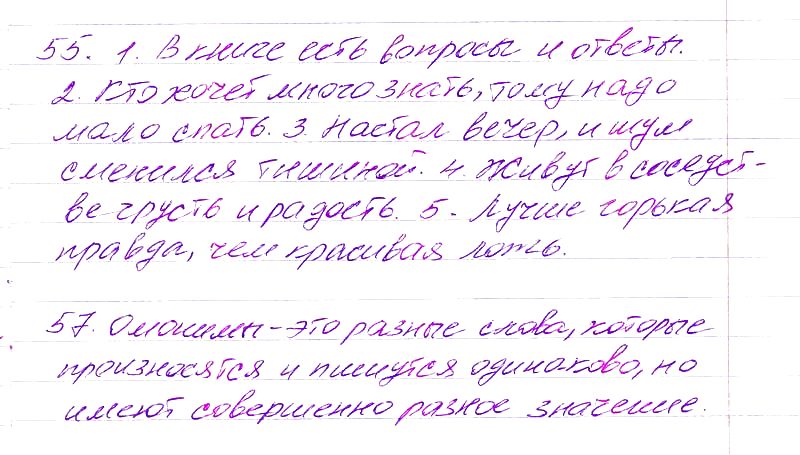 55. 1. В книге есть вопросы и ответы.
2. Кто хочет много знать, тому надо
мало спать. 3. Настал вечер, и шум
сменился тишиной. 4. Живут в соседст-
ве грусть и радость. 5. Лучше горькая
правда, чем красивая ложь.
57. Омонимы - это разные слова, которые
произносятся и пишутся одинаково, но
имеют совершенно разное значение.